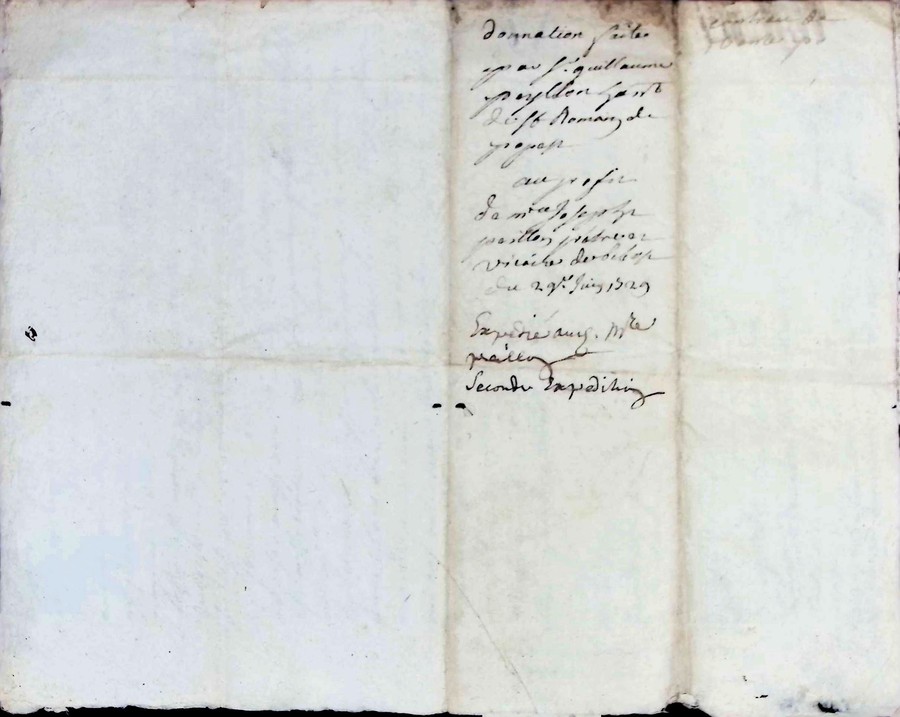 donnation faite
par Sr. guillaume
peyllon habt
de st Romans de
popest
au profit
de mre Joseph
peillon prêtre et
vicaire de
du 29e Juin 1729
Expedié aud. Mre
peillon
Seconde Expedition